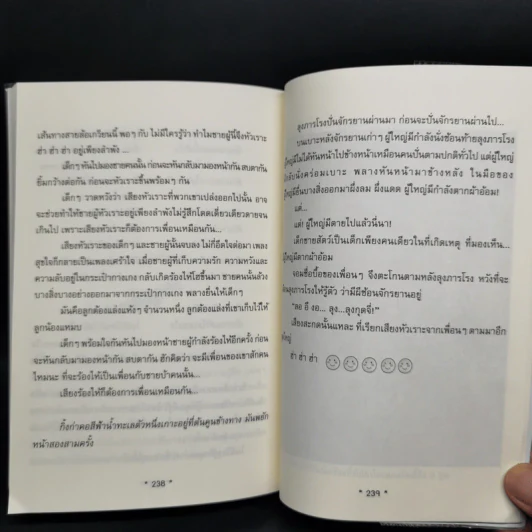 เส้นทางสายล้อเกวียนนี้ พอๆ กับ ไม่มีใครรู้ว่า ทำไมชายผู้นี้จึงหัวเราะ
ฮ่า ฮ่า ฮ่า อยู่เพียงลำพัง ...
เด็กๆ หันไปมองชายคนนั้น ก่อนจะหันกลับมามองหน้ากัน สบตากัน
ยิ้มกว้างต่อกัน ก่อนจะหัวเราะขึ้นพร้อมๆ กัน
เด็กๆ วาดหวังว่า เสียงหัวเราะที่พวกเขาเปล่งออกไปนั้น อาจ
จะช่วยทำให้ชายผู้หัวเราะอยู่เพียงลำพังไม่รู้สึกโดดเดี่ยวเดียวดายจน
เกินไป เพราะเสียงหัวเราะก็ต้องการเพื่อนเหมือนกัน...
เสียงหัวเราะของเด็กๆ และชายผู้นั้นจบลง ไม่กี่อึดใจต่อมา เพลง
สุขใจก็กลายเป็นเพลงเศร้าใจ เมื่อชายผู้ที่เก็บความรัก ความหวังและ
ความลับอยู่ในกระเป๋ากางเกง กลับเกิดร้องไห้โฮขึ้นมา ชายคนนั้นล้วง
บางสิ่งบางอย่างออกมาจากกระเป๋ากางเกง พลางยื่นให้เด็กๆ
มันคือลูกต้องแล่งแห้งๆ จำนวนหนึ่ง ลูกต้องแล่งที่เขาเก็บไว้ให้
ลูกน้องแหมบ
เด็กๆ พร้อมใจกันหันไปมองชายผู้กำลังร้องไห้อีกครั้ง ก่อน
จะหันกลับมามองหน้ากัน สบตากัน ฮักคิดว่า จะมีเพื่อนของเขาสักคน
ไหมนะ ที่จะร้องไห้เป็นเพื่อนกับชายบ้าคนนั้น...
เสียงร้องไห้ก็ต้องการเพื่อนเหมือนกัน...
กิ้งก่าคอสีฟ้าน้ำทะเลตัวหนึ่งเกาะอยู่ที่ต้นคูนข้างทาง มันพยัก
หน้าสองสามครั้ง
* 238 *
ลุงภารโรงปั่นจักรยานผ่านมา ก่อนจะปั่นจักรยานผ่านไป...
บนเบาะหลังจักรยานเก่าๆ ผู้ใหญ่มีกำลังนั่งซ้อนท้ายลุงภารโรง
ผู้ใหญ่มีไม่ได้หันหน้าไปข้างหน้าเหมือนคนปั่นตามปกติทั่วไป แต่ผู้ใหญ่
นั่งคร่อมเบาะ พลางหันหน้ามาข้างหลัง ในมือของ
ผู้ใหญ่มียื่นบางสิ่งออกมาผึ่งลม ผึ่งแดด ผู้ใหญ่มีกำลังตากผ้าอ้อม!
แต่...
แต่! ผู้ใหญ่มีตายไปแล้วนี่นา!
เด็กชายสัตว์เป็นเด็กเพียงคนเดียวในที่เกิดเหตุ ที่มองเห็น...
ผู้ใหญ่มีตากผ้าอ้อม
จอมซื่อบื้อของเพื่อนๆ จึงตะโกนตามหลังลุงภารโรง หวังที่จะ
ลุงภารโรงให้รู้ตัว ว่ามีผีซ้อนจักรยานอยู่
"ลอ อี งอ... ลุง...ลุงกูตจี่!"
เสียงสะกดนั้นแหละ ที่เรียกเสียงหัวเราะจากเพื่อนๆ ตามมาอีก
ฮ่า ฮ่า ฮ่า
* 239 *